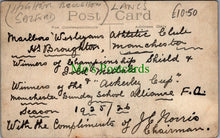 (HIGHER BROUGHTON LANCS
(SALFORD)
Post Card
£10.50
Marlboro' Wesleyans Athletic Club
Hr Broughton, Manchester
Winners of Championship Shield &
Winners of the "Ackerley Cup"
Manchester Sunday School Alliance F.A.
Season 1925/26
With the Compliments of J G Norris
Chairman
RStamps